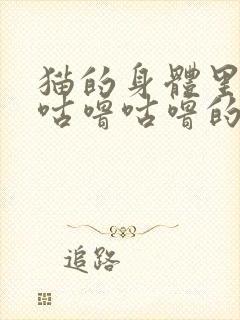 猫的身體里
咕嚕咕嚕的
追路